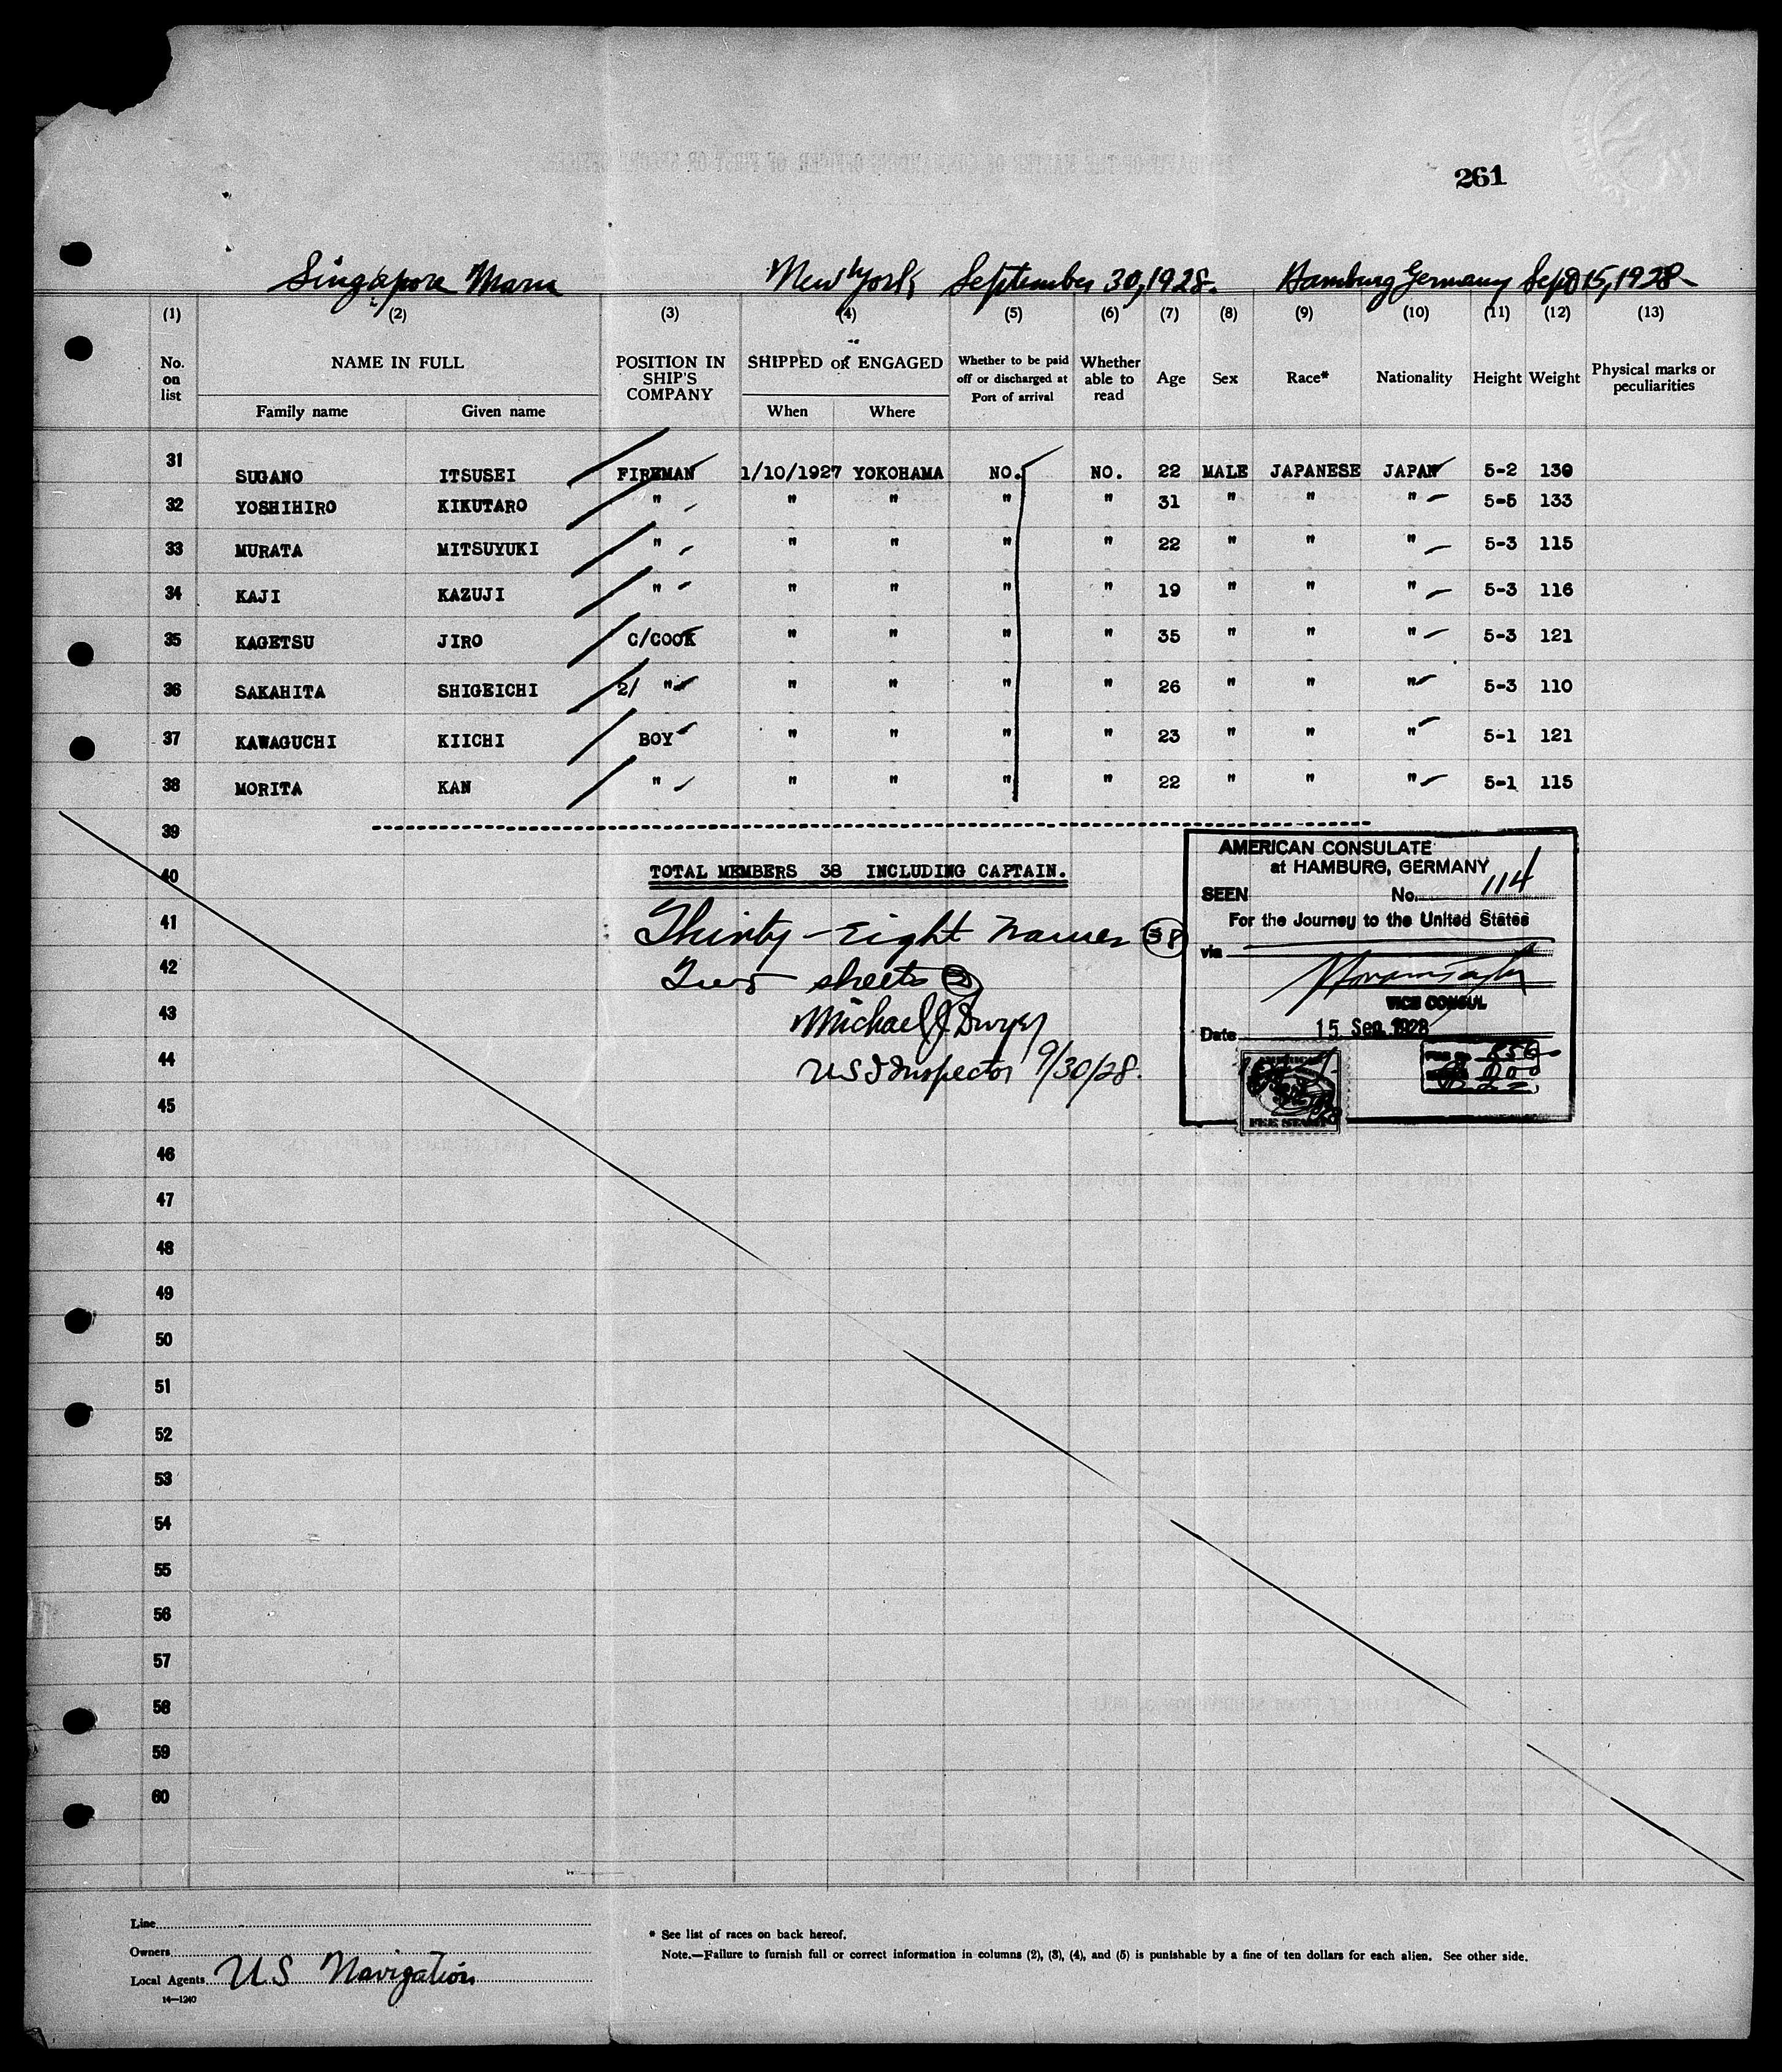 261
Singapore Maru New York September 30, 1928. Hamburg Germany Sept 15, 1928
(1) (2) (3) (4) (5) (6) (7) (8) (9) (10) (11) (12) (13)
No. on list NAME IN FULL POSITION IN SHIP'S COMPANY SHIPPED OR ENGAGED Whether to be paid off or discharged at Port of arrival Whether able to read Age Sex Race* Nationality Height Weight Physical marks or peculiarities
Family name Given name When Where
31 SUGANO ITSUSEI FIREMAN 1/10/1927 YOKOHAMA NO. NO. 22 MALE JAPANESE JAPAN 5-2 130
32 YOSHIHIRO KIKUTARO " " " " " 31 " " " 5-5 133
33 MURATA MITSUYUKI " " " " " 22 " " " 5-3 115
34 KAJI KAZUJI " " " " " 19 " " " 5-3 116
35 KAGETSU JIRO C/COOK " " " " 35 " " " 5-3 121
36 SAKAHITA SHIGEICHI 2/ " " " " " 26 " " " 5-3 110
37 KAWAGUCHI KIICHI BOY " " " " 23 " " " 5-1 121
38 MORITA KAN " " " " " 22 " " " 5-1 115
39
40 TOTAL MEMBERS 38 INCLUDING CAPTAIN.
41 Thirty-Eight names 38
42 Two sheets 2
43 Michael J Dwyer
44 US I Inspector 9/30/28.
AMERICAN CONSULATE
at HAMBURG, GERMANY
SEEN No. 114
For the Journey to the United States
via
VICE CONSUL
Date 15 Sep. 1928
FEE STAMP
45
46
47
48
49
50
51
52
53
54
55
56
57
58
59
60
Line
Owners
Local Agents U.S Navigation
14—1240
* See list of races on back hereof.
Note.—Failure to furnish full or correct information in columns (2), (3), (4), and (5) is punishable by a fine of ten dollars for each alien. See other side.